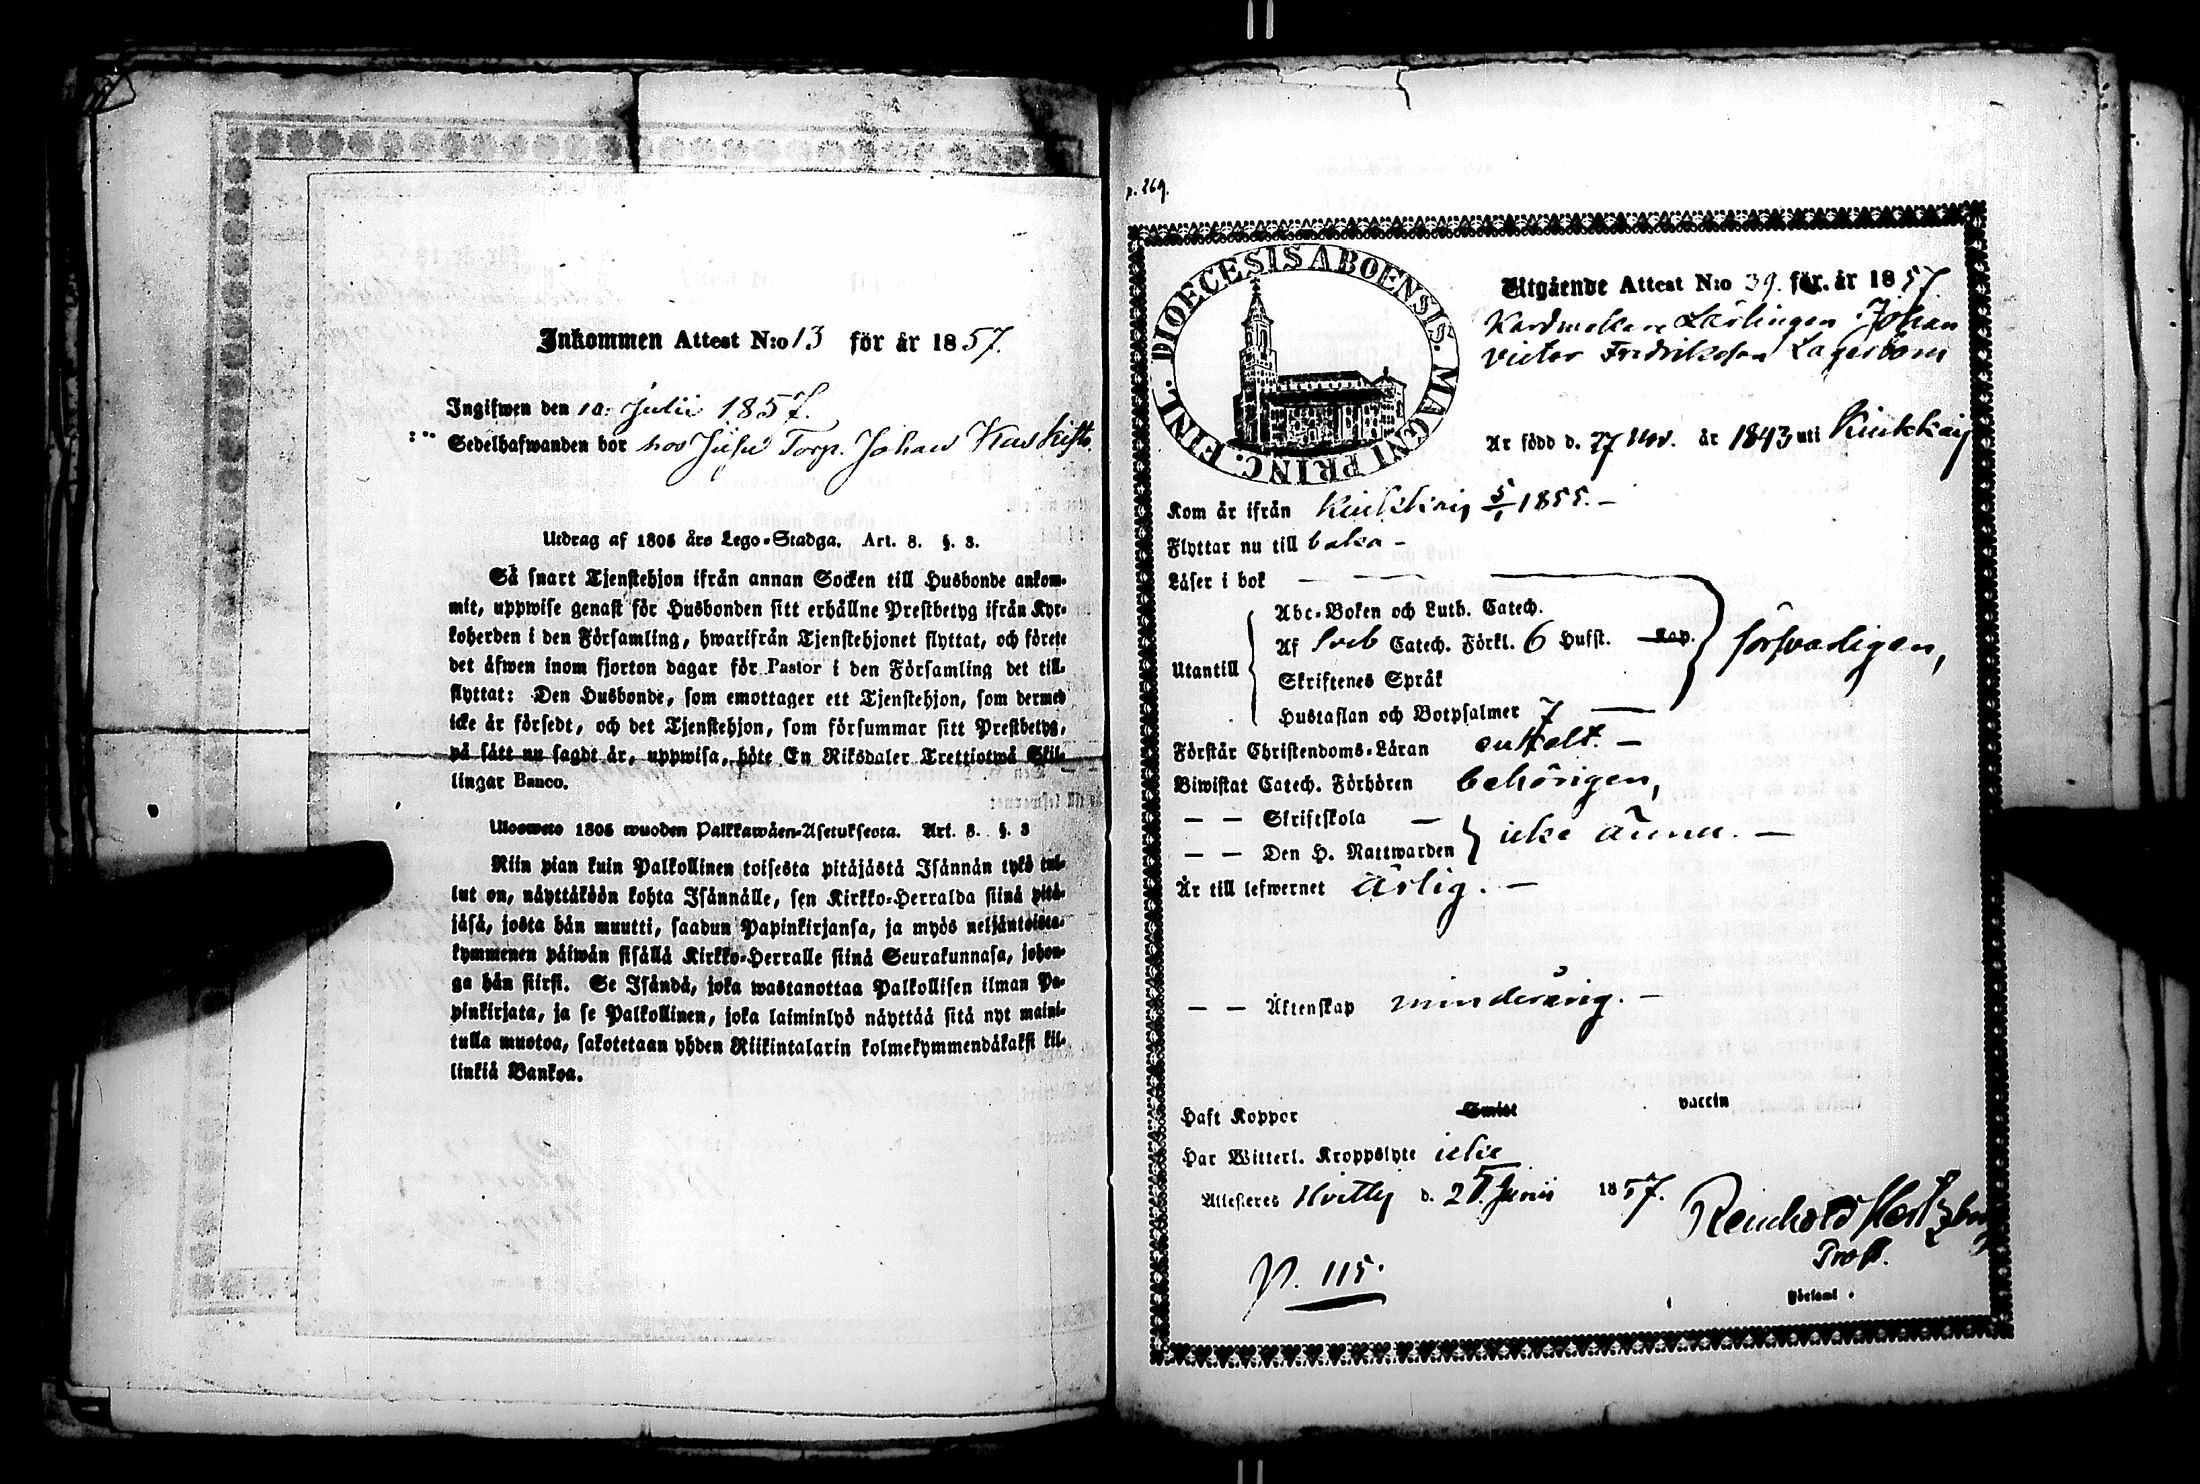 Inkommen Attest N:o 13 för år 1857.
Ingifwen den 10. Julii 1857.
Sedelhafwanden bor hos Torp. Johan
Utdrag af 1805 års Lego-Stadga. Art. 8. §. 3.
Så snart Tjenstehjon ifrån annan Socken till Husbonde ankom-
mit, uppwise genast för Husbonden sitt erhållne Prestbetyg ifrån Kyr-
koherden i den Församling, hwarifrån Tjenstehjonet flyttat, och förete
det äfwen inom fjorton dagar för Pastor i den Församling det till-
flyttat: Den Husbonde, som emottager ett Tjenstehjon, som dermed
icke är försedt, och det Tjenstehjon, som försummar sitt Prestbetyg,
på sätt nu sagdt är, uppwisa, böte En Riksdaler Trettiotwå Skil-
lingar Banco.
Ulosweto 1805 wuoden Palkkawäen-Asetuksesta. Art. 8. §. 3
Niin pian kuin Palkollinen toisesta pitäjästä Isännän tykö tul-
lut on, näyttäköön kohta Isännälle, sen Kirkko-Herralda siinä pitä-
jäsä, josta hän muutti, saadun Papinkirjansa, ja myös neljäntoista-
kymmenen päiwän sisällä Kirkko-Herralle siinä Seurakunnasa, johon-
ga hän siirsi. Se Isändä, joka wastanottaa Palkollisen ilman Pa-
pinkirjata, ja se Palkollinen, joka laiminlyö näyttää sitä nyt maini-
tulla muotoa, sakotetaan yhden Riikintalarin kolmekymmendäkaksi kil-
linkiä Bankoa.
p. 269.
DIOECESIS ABOENSIS. MAGNI PRINC. FINL.
Utgående Attest N:o 39. för år 1857.
Kardmakare Lärlingen Johan
Victor Fredriksson Lagerbom
Är född d. 27 Nov. år 1843 uti Kiukkais
Kom år ifrån Kiukkais 5/1 1855. –
Flyttar nu till baka –
Läser i bok
Abc-Boken och Luth. Catech.
Utantill Af Sveb Catech. Förkl. 6 Hufst. Kap. försvarligen,
Skriftenes Språk
Hustaflan och Botpsalmer 7
Förstår Christendoms-Läran enkelt. –
Biwistat Catech. Förhören behörigen,
– – Skriftskola –
– – Den H. Nattwarden icke ännu. –
Är till lefwernet ärlig. –
– – Äktenskap minderårig. –
Haft Koppor vaccin
Har Witterl. Kroppslyte icke
Attesteres Hvittis d. 25 Junii 1857.
Reinhold Hertzberg
Prost.
Församl.
p. 115.